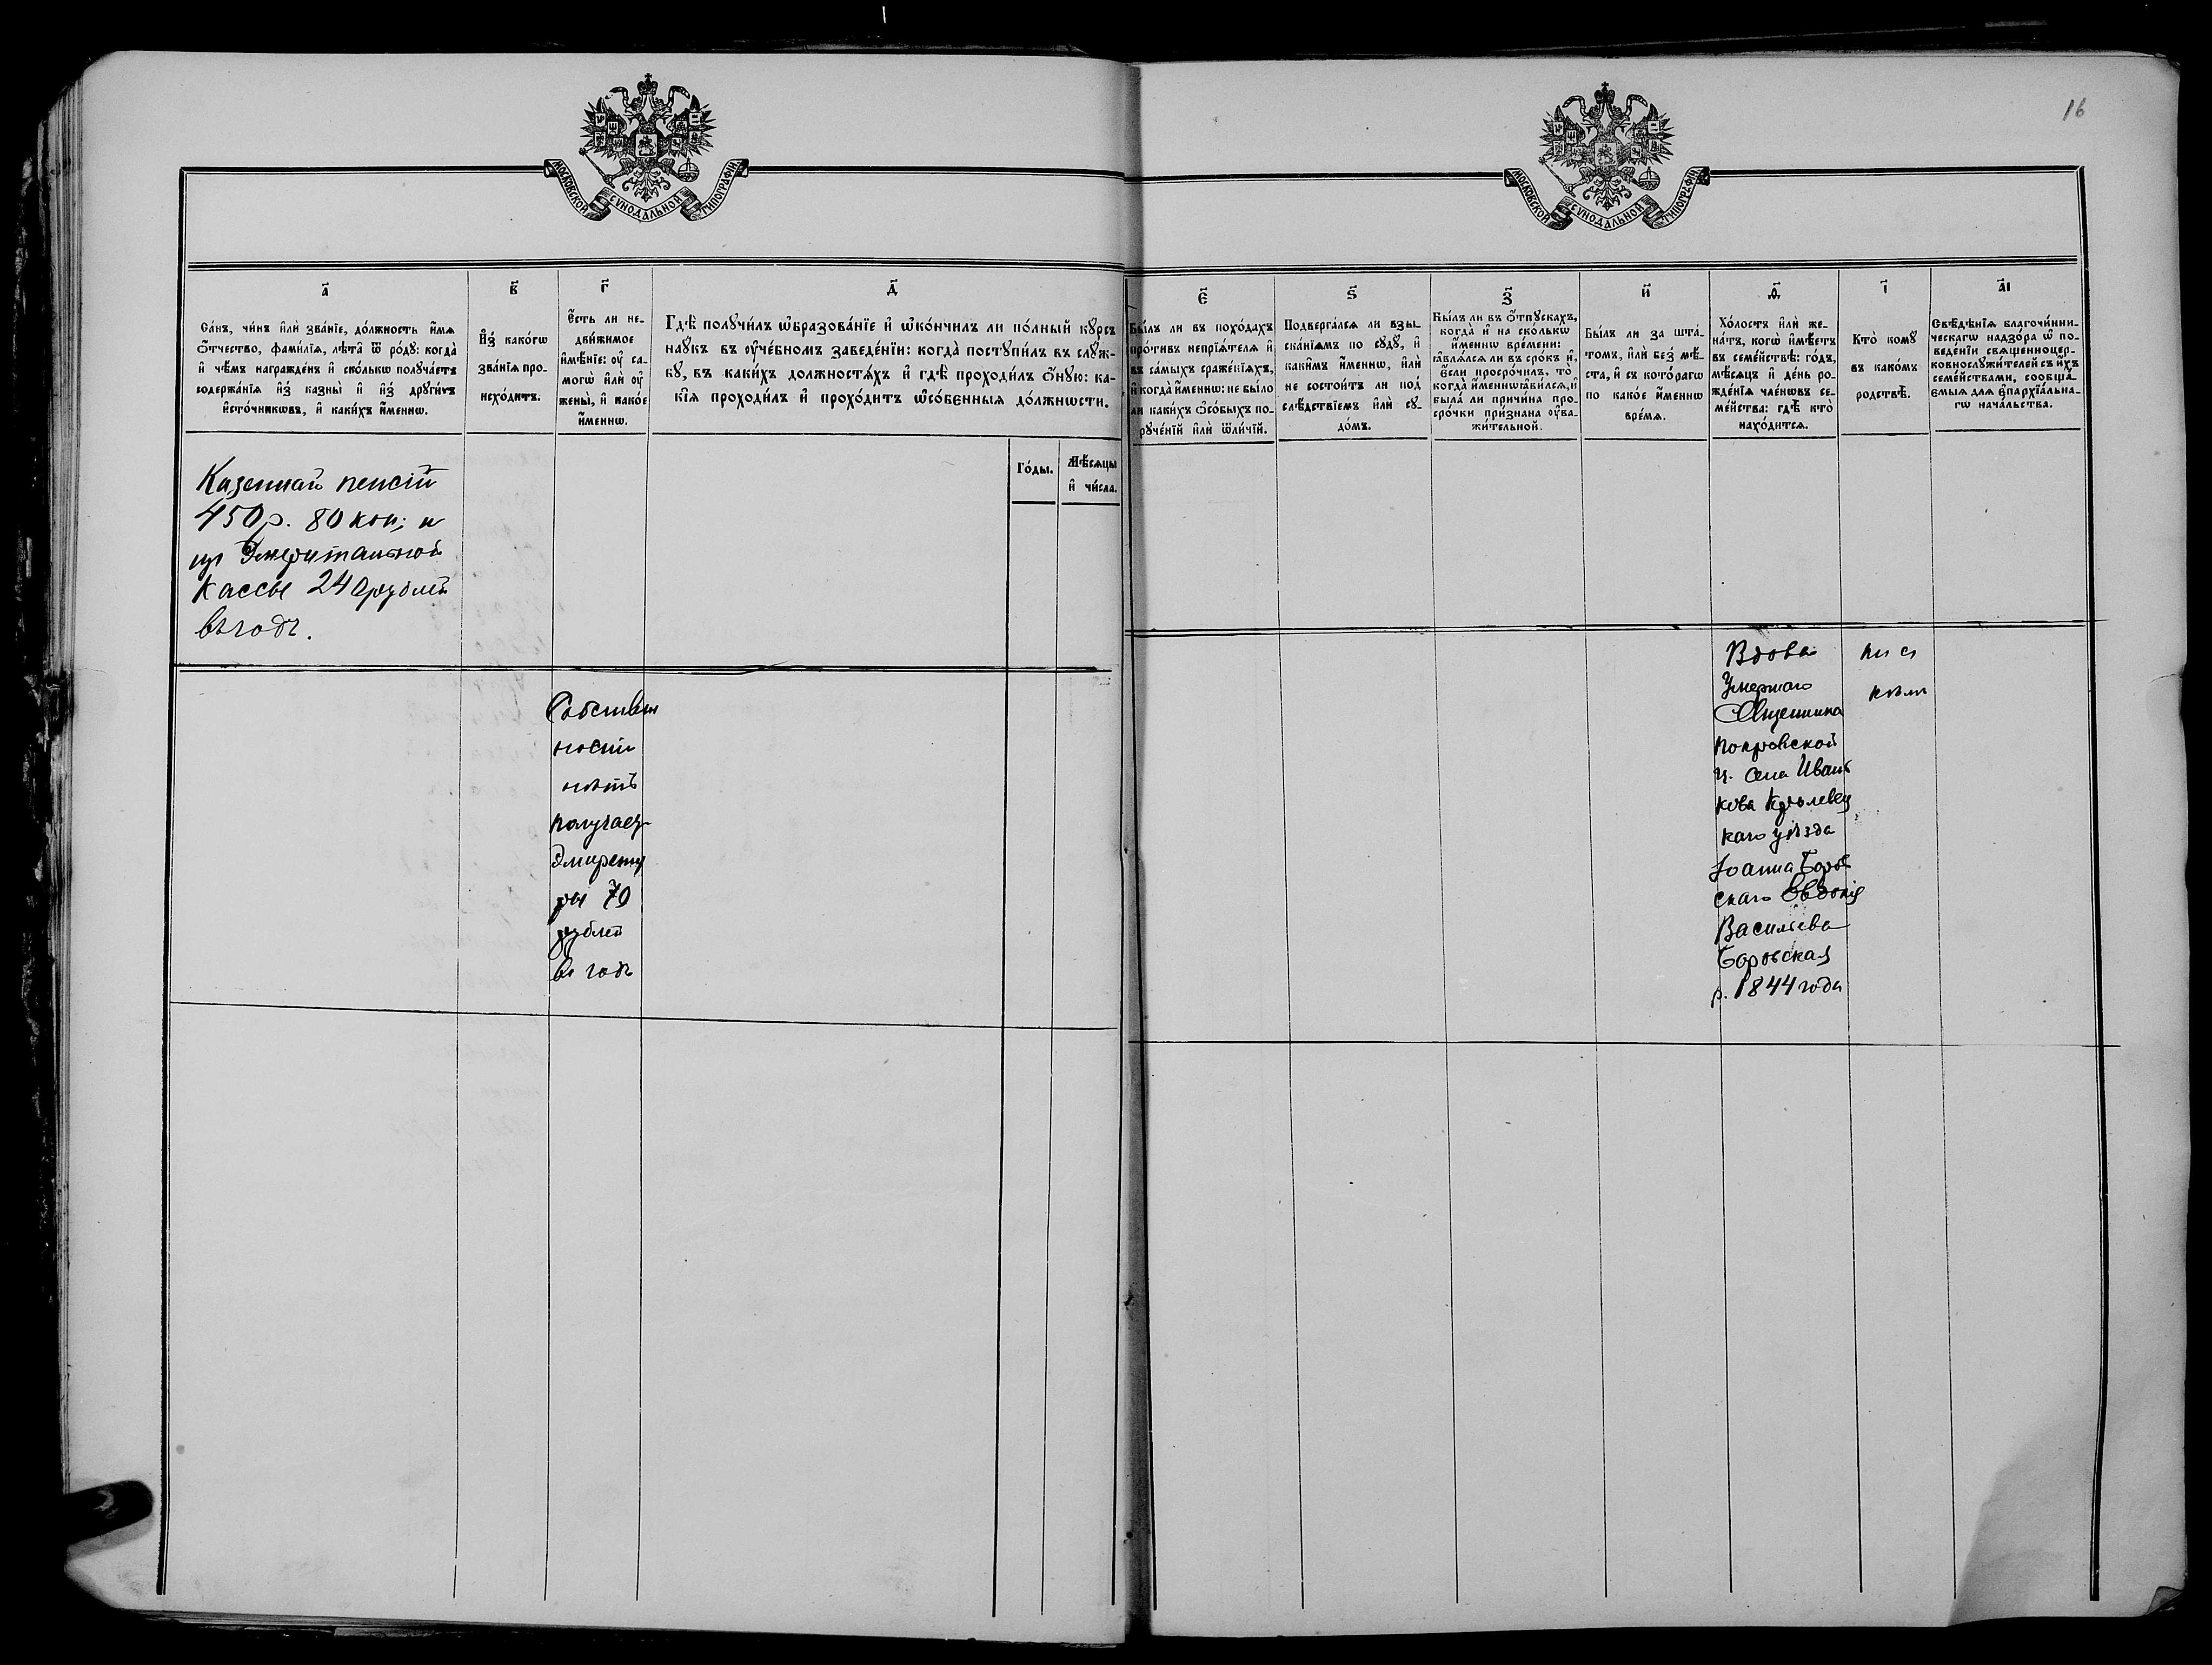 16
МОСКОВСКОЙ СѴНОДАЛЬНОЙ ТИПОГРАФІИ
МОСКОВСКОЙ СѴНОДАЛЬНОЙ ТИПОГРАФІИ
а҃
Са́нъ, чи́нъ и҆лѝ зва́нїе, до́лжность и҆́мѧ
ѻ҆́тчество, фамѝлїѧ, лѣ́та ѿ ро́дꙋ: когда̀
и҆ чѣ́мъ награжде́нъ и҆ ско́лькѡ полꙋча́етъ
содержа́нїѧ и҆з̾ казны̀ и҆ и҆з̾ дрꙋги́хъ
и҆сто́чникѡвъ, и҆ каки́хъ и҆́меннѡ.
в҃
И҆з̾ како́гѡ
зва́нїѧ про-
исхо́дитъ.
г҃
Е҆́сть ли не-
дви́жимое
и҆мѣ́нїе: ᲂу҆ са-
могѡ̀ и҆лѝ ᲂу҆
жены̀, и҆ како́е
и҆́меннѡ.
д҃
Гдѣ̀ полꙋчи́лъ ѡ҆бразова́нїе и҆ ѡ҆ко́нчилъ ли по́лный кꙋ́рсъ
наꙋ́къ въ ᲂу҆че́бномъ заведе́нїи: когда̀ постꙋпи́лъ въ слꙋ́ж-
бꙋ, въ каки́хъ должностѧ́хъ и҆ гдѣ̀ проходи́лъ ѻ҆́нꙋю: ка-
кі̑ѧ проходи́лъ и҆ прохо́дитъ ѡ҆со́бенныѧ до́лжнѡсти.
Го́ды.
Мѣ́сѧцы
и҆ чи́сла.
є҃
Бы́лъ ли въ похо́дахъ
про́тивъ непрїѧ́телѧ и҆
въ са́мыхъ сраже́нїѧхъ,
и҆ когда̀ и҆́меннѡ: не бы́ло
ли каки́хъ ѻ҆со́быхъ по-
рꙋче́нїй и҆лѝ ѿли́чїй.
ѕ҃
Подверга́лсѧ ли взы-
ска́нїѧмъ по сꙋдꙋ̀, и҆
каки́мъ и҆́меннѡ, и҆лѝ
не состои́тъ ли под
слѣ́дствїемъ и҆лѝ сꙋ-
до́мъ.
з҃
Бы́лъ ли въ ѻ҆́тпꙋскахъ,
когда̀ и҆ на ско́лькѡ
и҆́меннѡ вре́мени:
ꙗ҆влѧ́лсѧ ли въ сро́къ и҆,
е҆́сли просро́чилъ, то̀
когда̀ и҆́меннѡ ꙗ҆ви́лсѧ, и҆
была́ ли причи́на про-
сро́чки при́знана ᲂу҆ва-
жи́тельной.
и҃
Бы́лъ ли за шта́-
томъ, и҆лѝ без̾ мѣ́-
ста, и҆ съ кото́рагѡ
по како́е и҆́меннѡ
вре́мѧ.
ѳ҃
Хо́лостъ и҆лѝ же-
на́тъ, когѡ̀ и҆мѣ́етъ
въ семе́йствѣ: го́дъ,
мѣ́сѧцъ и҆ де́нь ро-
жде́нїѧ чле́нѡвъ се-
ме́йства: гдѣ̀ кто̀
нахо́дитсѧ.
і҃
Кто̀ комꙋ̀
въ како́мъ
родствѣ̀.
а҃і
Свѣ́дѣнїѧ благочи́нни-
ческагѡ надзо́ра ѡ҆ по-
веде́нїи свѧщенноцер-
ковнослꙋжи́телей съ и҆́хъ
семе́йствами, сообща́-
емыѧ длѧ є҆пархїа́льна-
гѡ нача́льства.
Казенной пенсіи
450 р. 80 коп; и
из Эмеритальной
Кассы 240 рублей
въ годъ.
Собствен
ности
нѣтъ
получает
Эмириту
ры 70
рублей
въ годъ
Вдова
Умершаго
Священника
Покровской
ц. села Ивань
кова Кролевец
каго уѣзда
Іоанна Боров
скаго Евдокія
Васильева
Боровская
р. 1844 года